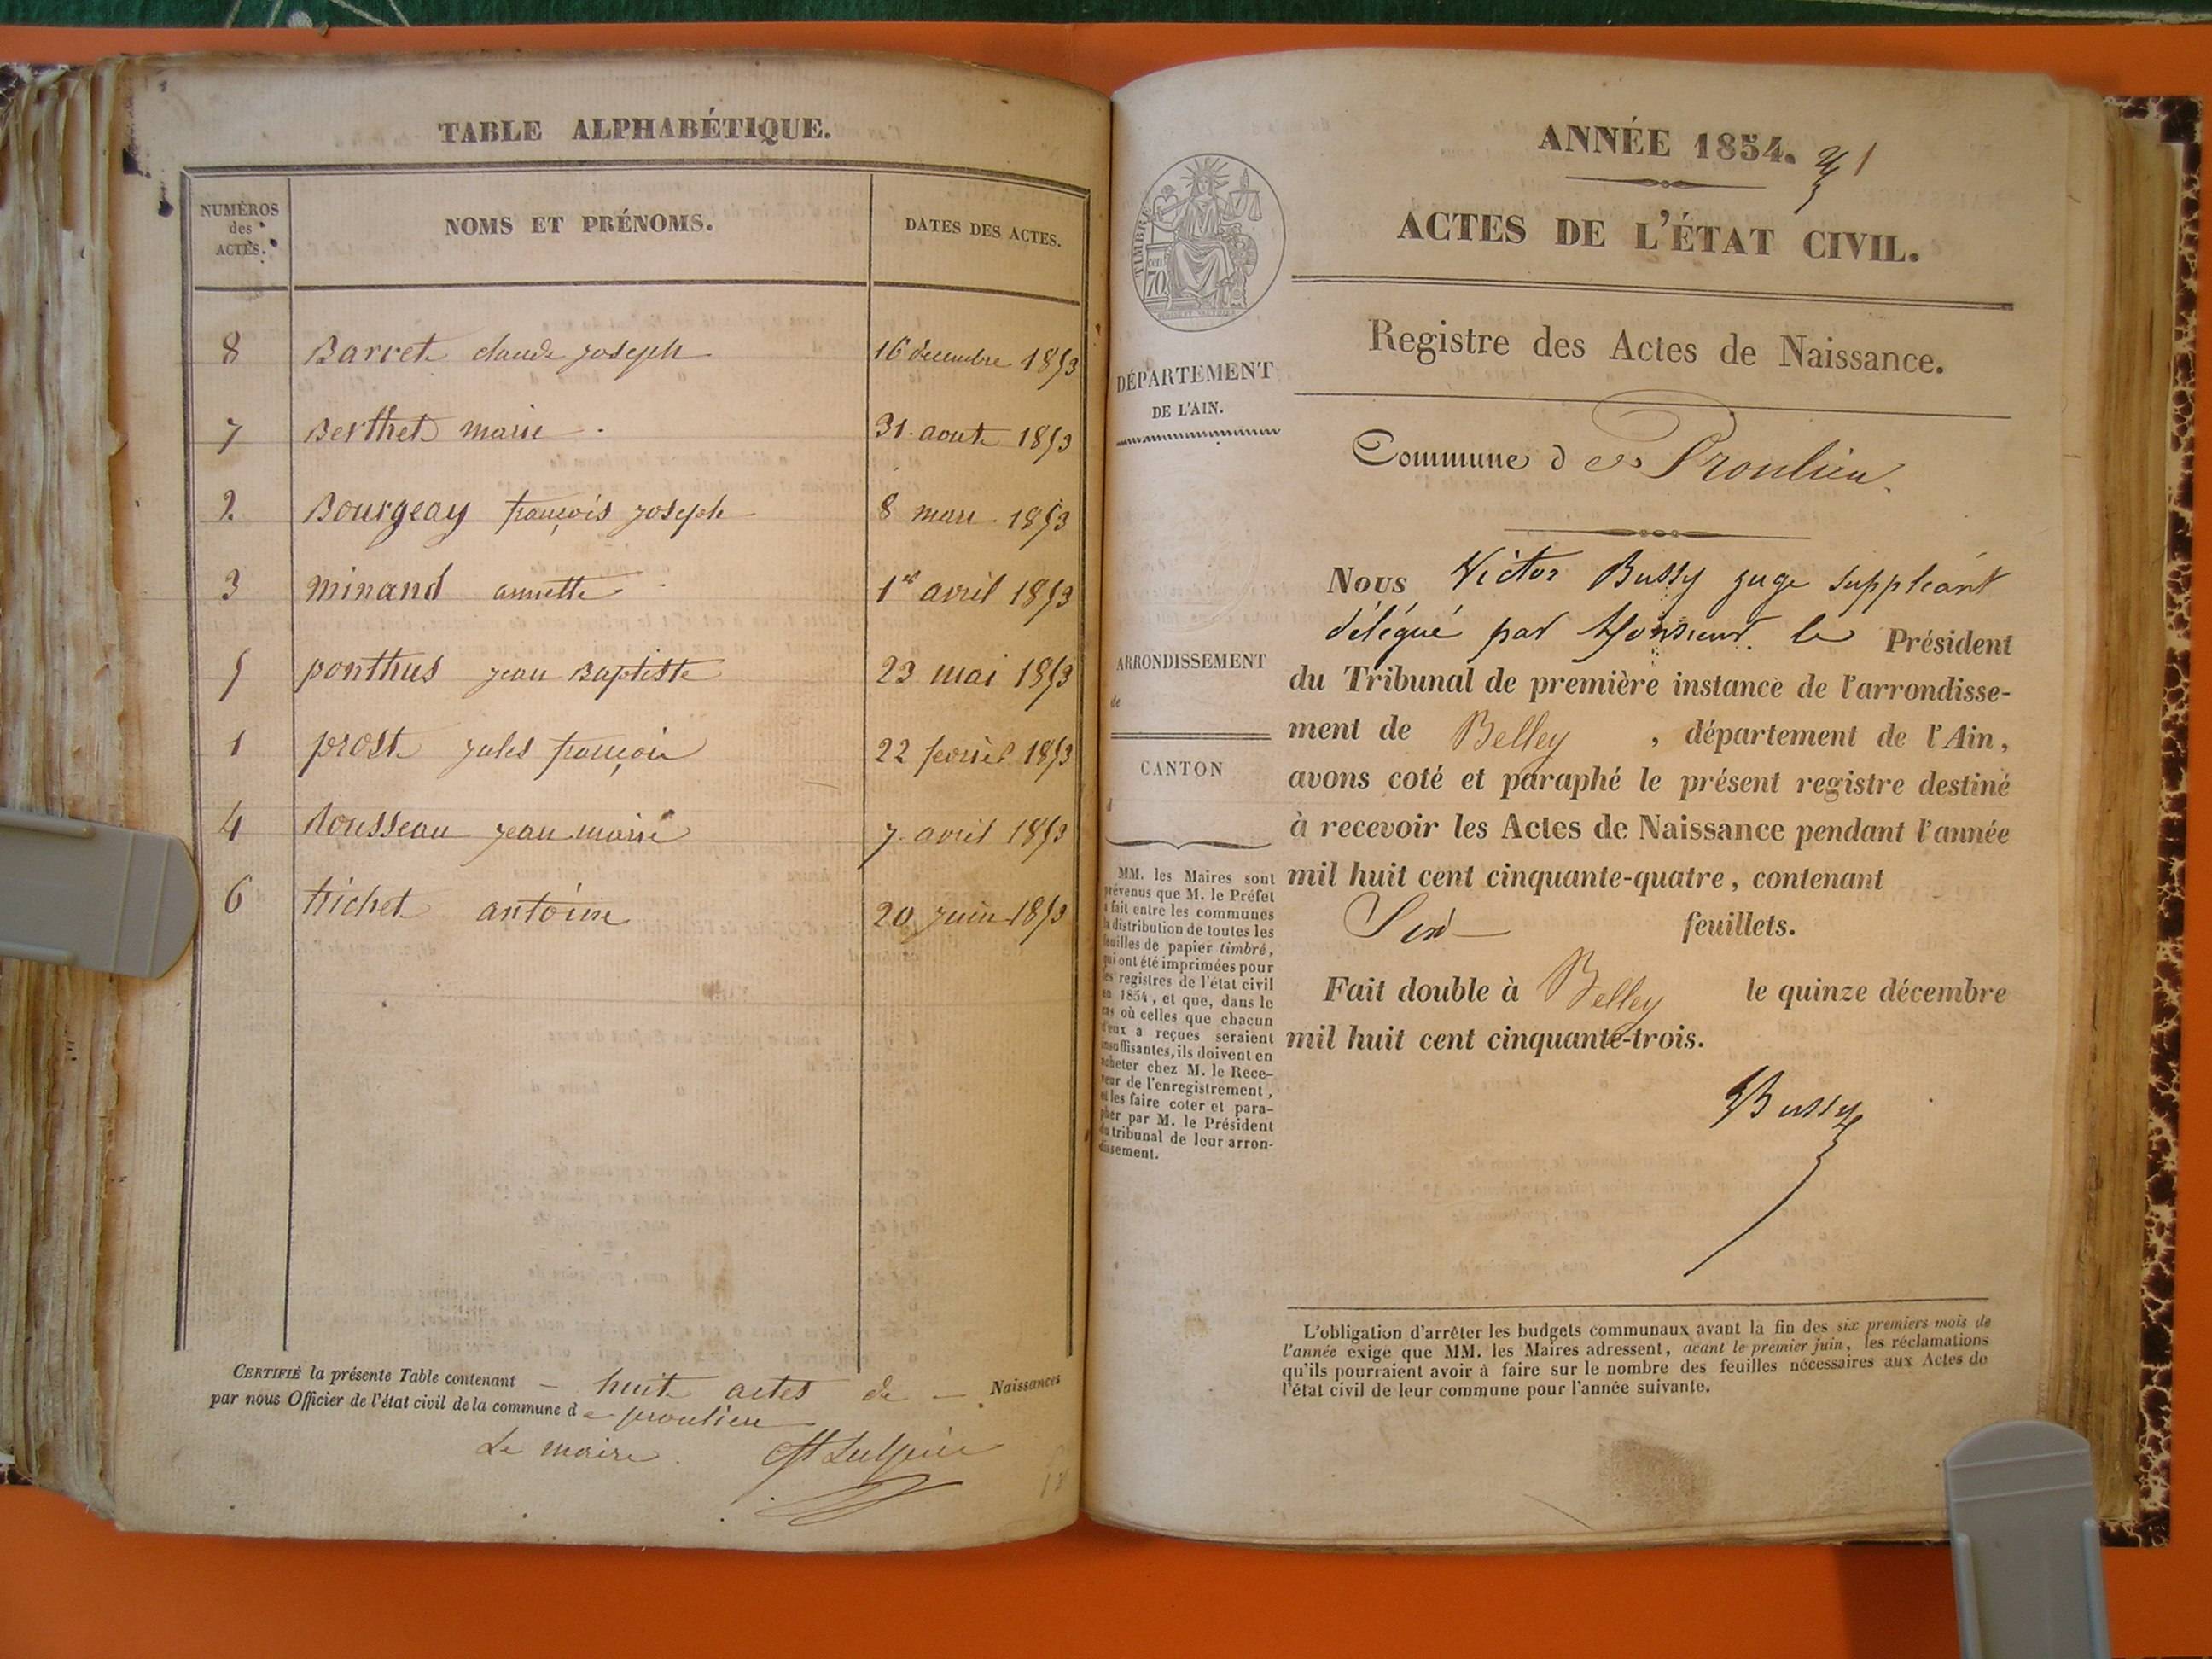 TABLE ALPHABÉTIQUE.
NUMÉROS des ACTES. NOMS ET PRÉNOMS. DATES DES ACTES.
8 Barret claude joseph 16 decembre 1853
7 Berthet marie 31 aout 1853
2 Bourgeay françois joseph 8 mars 1853
3 minand annette 1er avril 1853
5 ponthus jean Baptiste 23 mai 1853
1 prost jules françois 22 fevrier 1853
4 Rousseau jean marie 7 avril 1853
6 trichet antoine 20 juin 1853
CERTIFIÉ la présente Table contenant — huit actes de — Naissances
par nous Officier de l'état civil de la commune de proulieu
Le maire.
ANNÉE 1854. 1
ACTES DE L'ÉTAT CIVIL.
TIMBRE
cen 70
Registre des Actes de Naissance.
DÉPARTEMENT
DE L'AIN.
Commune de Proulieu.
ARRONDISSEMENT
de
CANTON
d
MM. les Maires sont
prévenus que M. le Préfet
a fait entre les communes
la distribution de toutes les
feuilles de papier timbré,
qui ont été imprimées pour
les registres de l'état civil
en 1854, et que, dans le
cas où celles que chacun
d'eux a reçues seraient
insuffisantes, ils doivent en
acheter chez M. le Rece-
veur de l'enregistrement,
et les faire coter et para-
pher par M. le Président
du tribunal de leur arron-
dissement.
Nous Victor Bussy juge suppléant
délégué par Monsieur le Président
du Tribunal de première instance de l'arrondisse-
ment de Belley, département de l'Ain,
avons coté et paraphé le présent registre destiné
à recevoir les Actes de Naissance pendant l'année
mil huit cent cinquante-quatre, contenant
Six feuillets.
Fait double à Belley le quinze décembre
mil huit cent cinquante-trois.
Bussy
L'obligation d'arrêter les budgets communaux avant la fin des six premiers mois de
l'année exige que MM. les Maires adressent, avant le premier juin, les réclamations
qu'ils pourraient avoir à faire sur le nombre des feuilles nécessaires aux Actes de
l'état civil de leur commune pour l'année suivante.